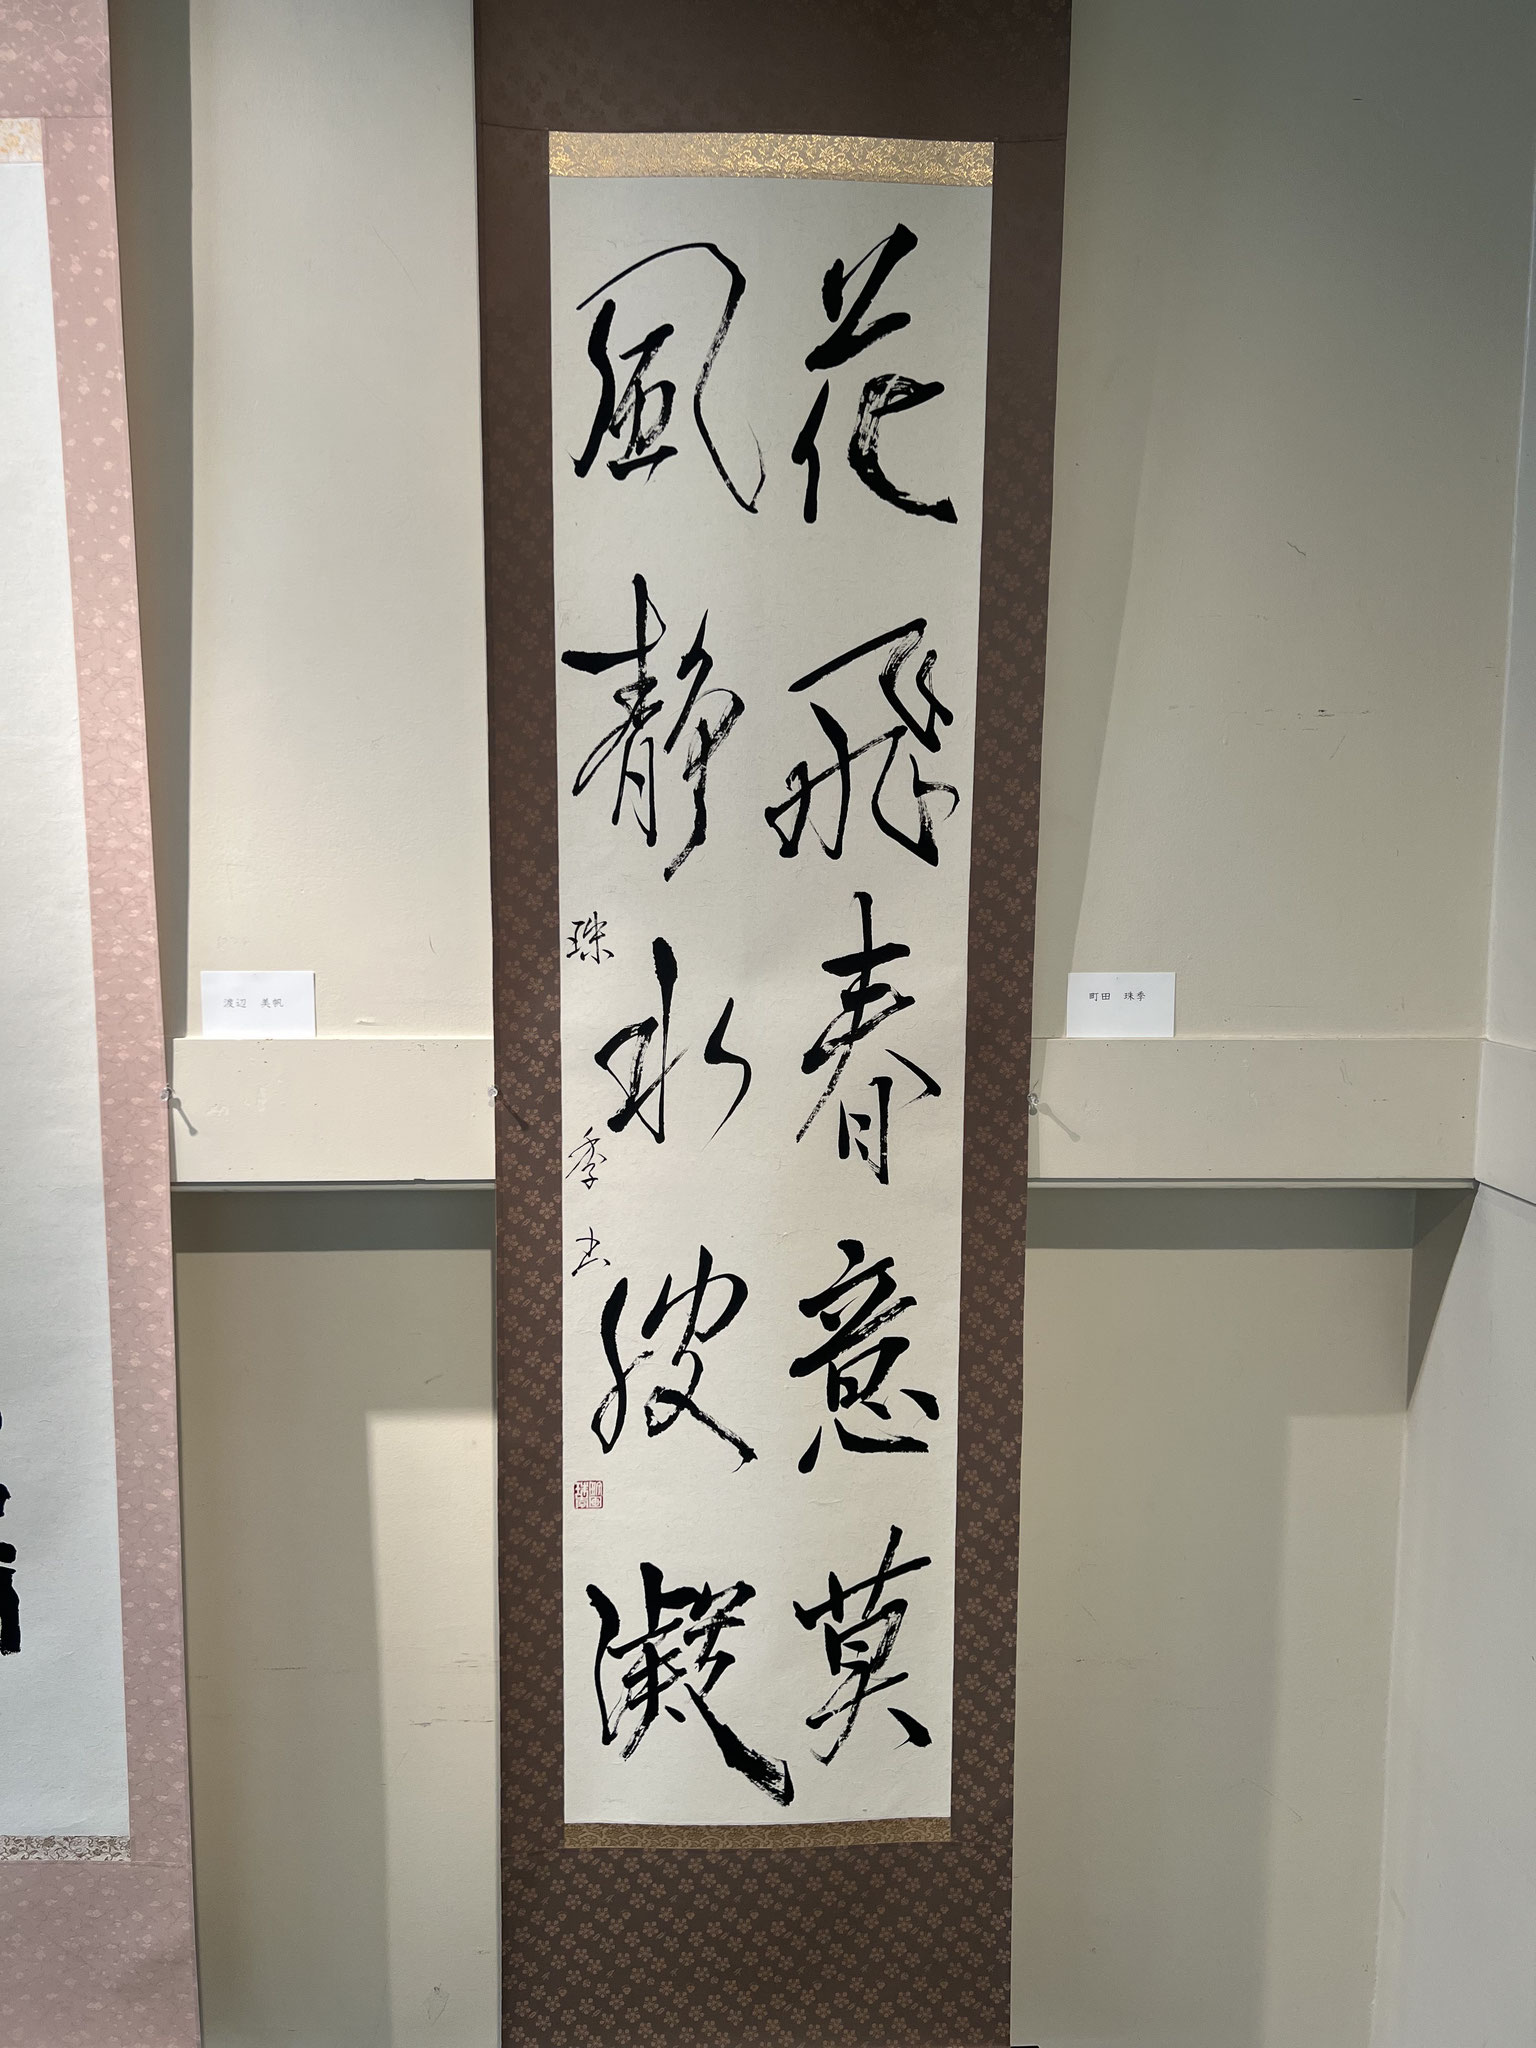 花飛春意莫
風静水波凝
珠季書
町田 珠季
渡辺 美帆